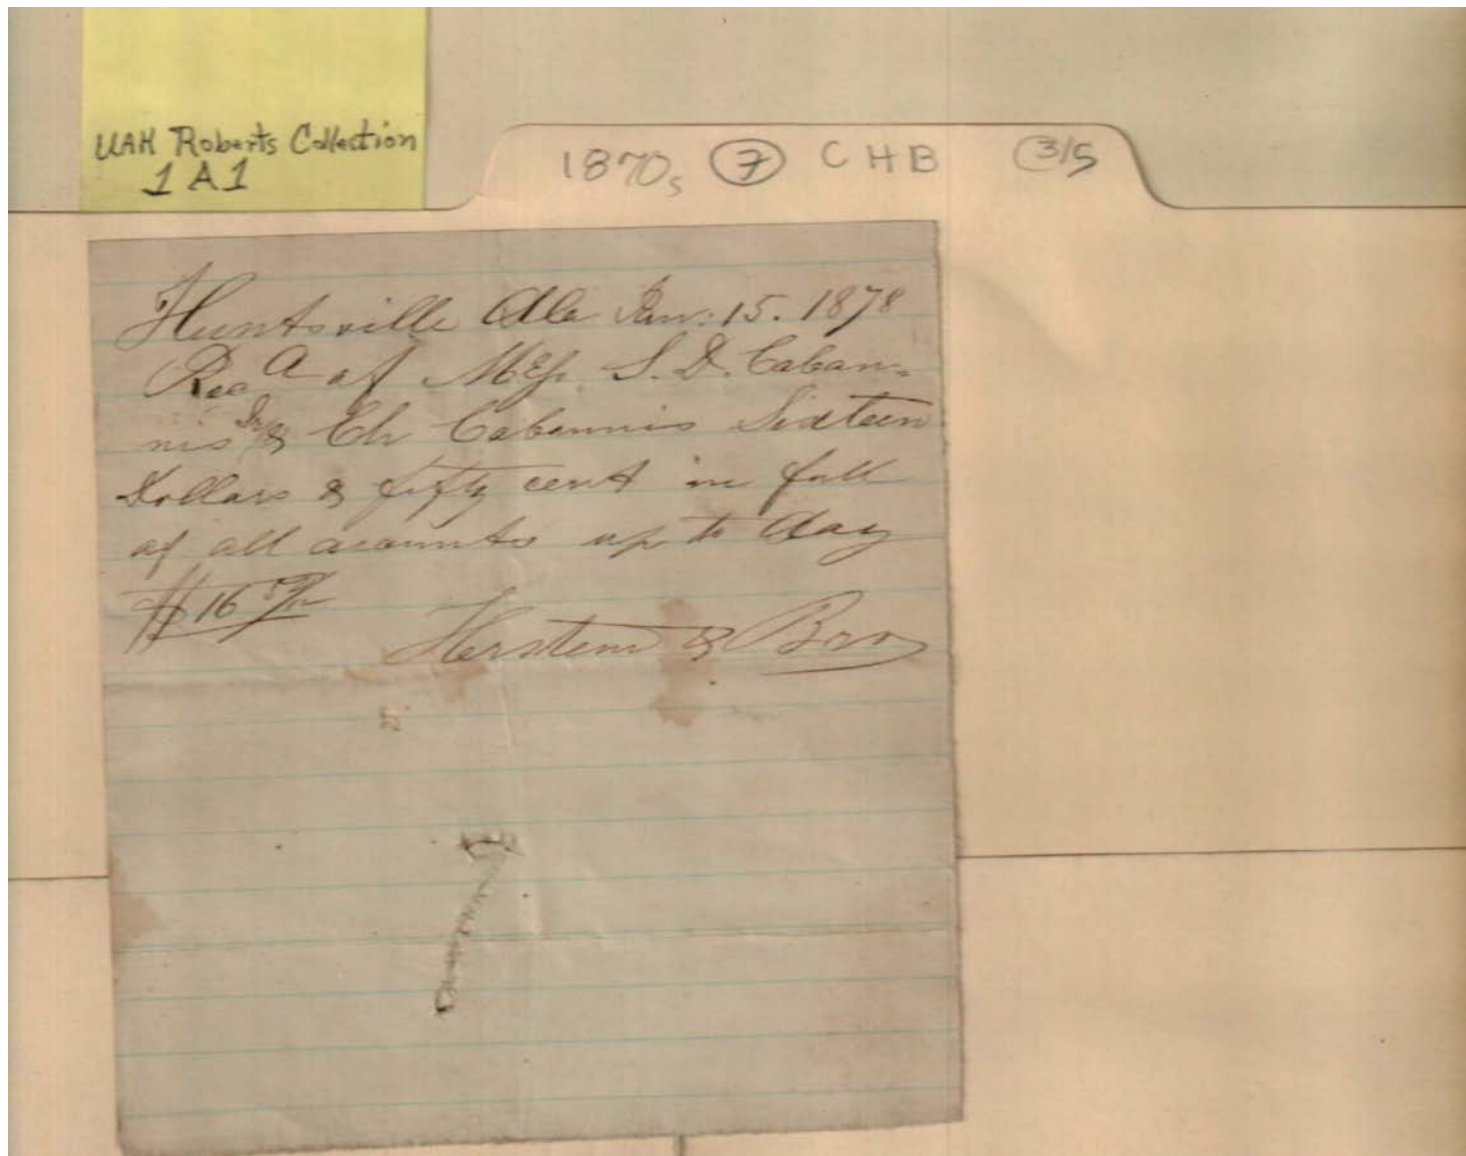 UAH Roberts Collection
1A1
1870s 7 CHB 3/5
Huntsville Ala Jan. 15. 1878
Recd of Mess. S. D. Caban-
nis Jr & Ch Cabannis Sixteen
Dollars & fifty cent in full
of all acounts up to day
$16 50/100
Herstein & Bro